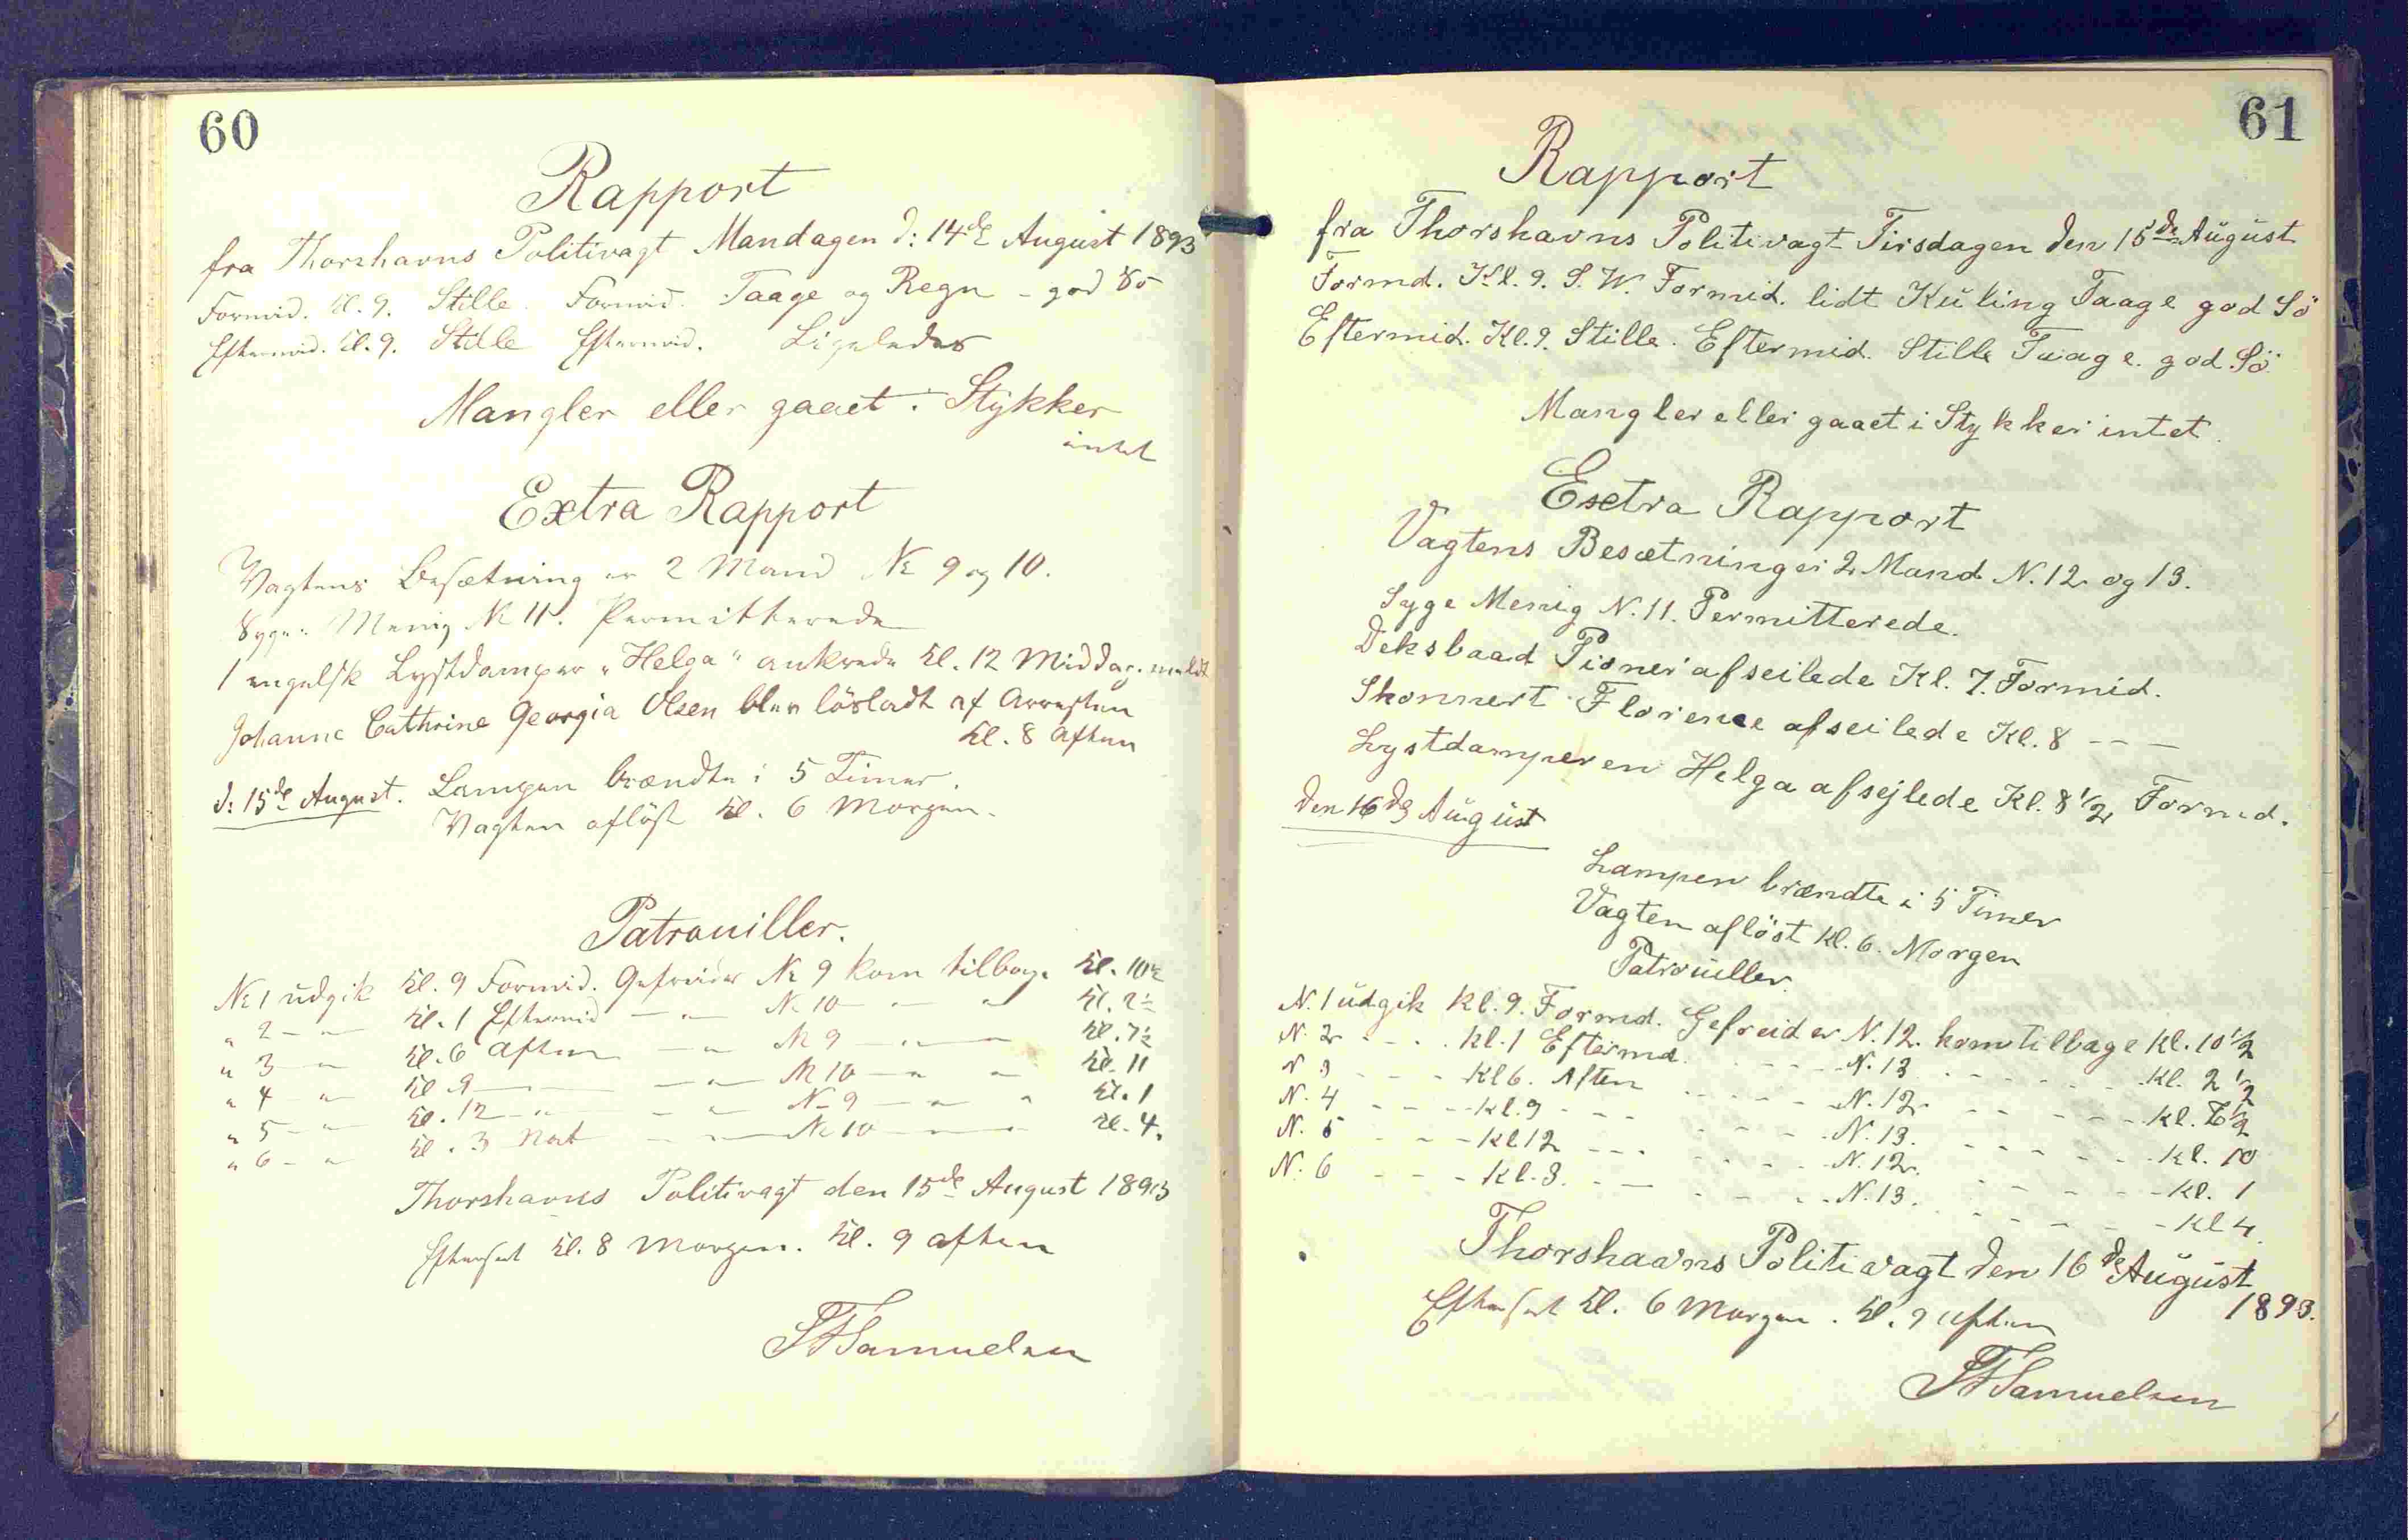 60
Rapport
fra Thorshavns Politivagt Mandagen d: 14de August 1893
Formid. Kl. 9. Stille. Formid. Taage og Regn - god Sö
Eftermid. Kl. 9. Stille Eftermid. Ligeledes
Mangler eller gaaet i Stykker
intet
Extra Rapport
Vagtens Besætning er 2 Mand № 9 og 10.
Syge: Menig № 11. Permitterede
1 engelsk Lystdamper "Helga" ankrede Kl. 12 Middag. meldt
Johanne Cathrine Georgia Olsen blev lösladt af Arresten
Kl. 8 Aften
d: 15de August. Lampen brændte i 5 Timer.
Vagten aflöst Kl. 6 Morgen.
Patrouiller.
№ 1 udgik Kl. 9 Formid. Gefreider № 9 kom tilbage Kl. 10½
" 2 - " Kl. 1 Eftermid - " № 10 - " " Kl. 2½
" 3 - " Kl. 6 Aften - " № 9 - " - Kl. 7½
" 4 - " Kl. 9 - " - " № 10 - " - Kl. 11
" 5 - " Kl. 12 - " - " № 9 - " " Kl. 1
" 6 - " Kl. 3 Nat - " № 10 - " - Kl. 4.
Thorshavns Politivagt den 15de August 1893
Efterset Kl. 8 Morgen. Kl. 9 Aften
Samuelsen
61
Rapport
fra Thorshavns Politivagt Tirsdagen den 15de August
Formd. Kl. 9. S. W. Formid. lidt Kuling Taage god Sö
Eftermid. Kl. 9. Stille. Eftermid. Stille Taage. god Sö.
Mangler eller gaaet i Stykker intet.
Exstra Rapport
Vagtens Besætning er 2 Mand N. 12 og 13.
Syge Menig N. 11. Permitterede.
Deksbaad Pioner afseilede Kl. 7. Formid.
Skonnert Florence afseilede Kl. 8 - - -
Lystdamperen Helga afsejlede Kl. 8 1/2 Formd.
den 16de August
Lampen brændte i 5 Timer
Vagten aflöst Kl. 6. Morgen
Patrouller.
N. 1 udgik Kl. 9. Formd. Gefreider N. 12. kom tilbage Kl. 10 1/2
N. 2 - - - Kl. 1 Eftermd. - - - - N. 13 - - - - - Kl. 2 1/2
N 3 - - - Kl 6. Aften - - - - N. 12. - - - - - Kl. 7 1/2
N. 4 - - - Kl. 9 - - - - - - N. 13. - - - - - Kl. 10
N. 5 - - - Kl 12 - - - - - - N. 12. - - - - - Kl. 1
N. 6 - - - Kl. 3. - - - - - - N. 13. - - - - - Kl 4.
Thorshavns Politivagt den 16de August
1893.
Efterset Kl. 6 Morgen. Kl. 9 Aften
Samuelsen